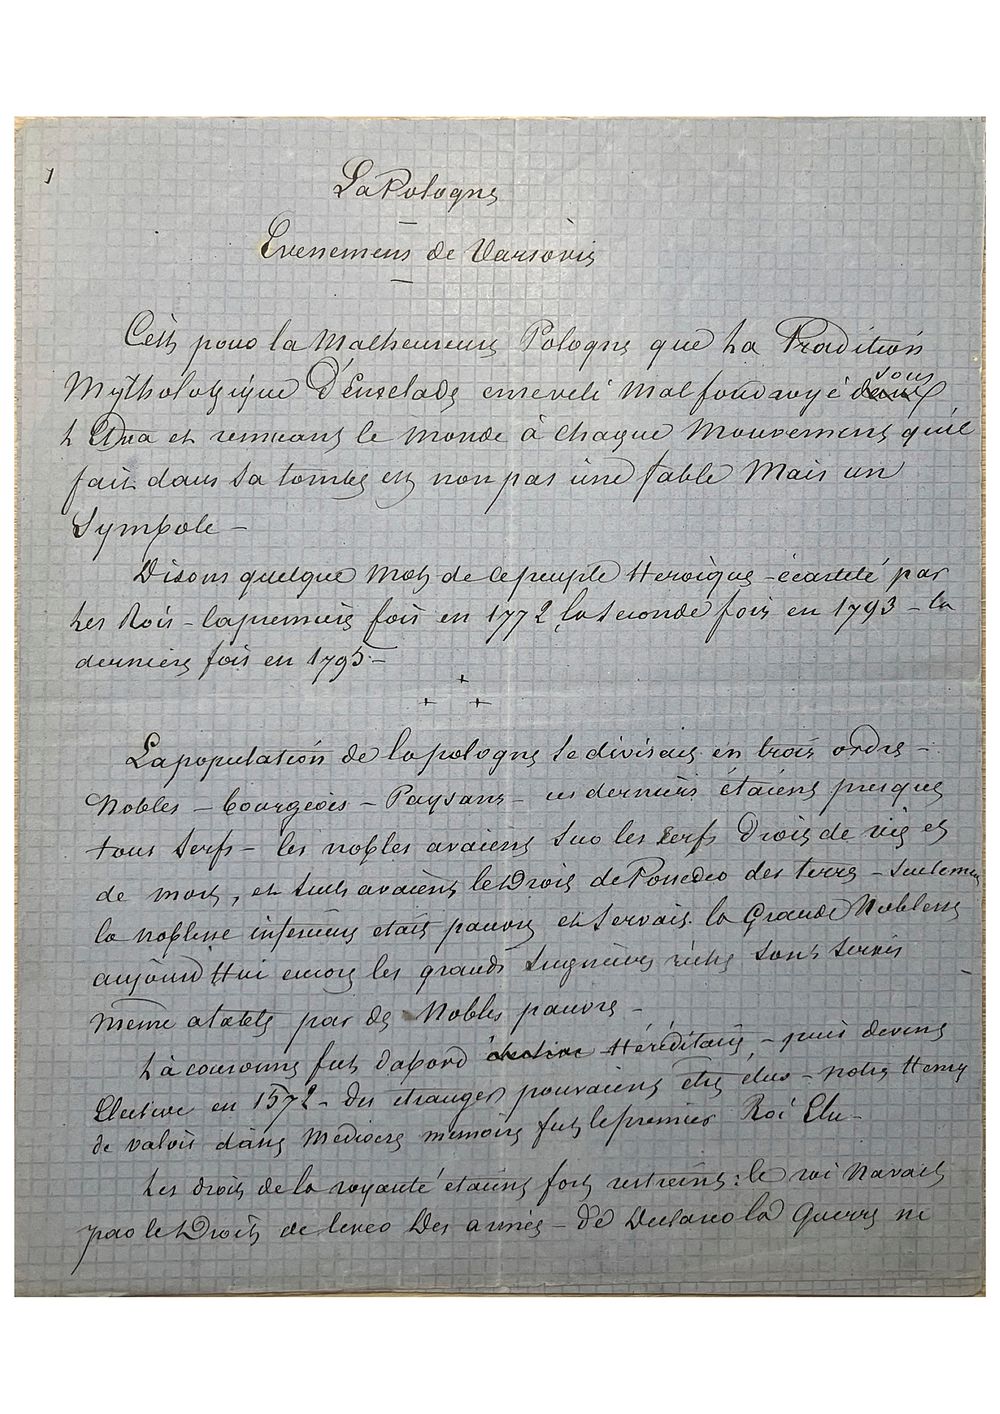 1
La Pologne
Evenemens de Varsovie
C'est pour la Malheureuse Pologne que La Tradition
Mythologique D'Enselade enseveli mal foudroyé dans sous
L'Etna et remuant le monde à chaque mouvement qu'il
fait dans sa tombe est non pas une fable Mais un
Symbole –
Disons quelque mots de ce peuple Heroique – écartelé par
Les Rois – la premiere fois en 1772 la seconde fois en 1793 – la
derniere fois en 1795 –
La population de la pologne se divisait en trois ordre –
Nobles – bourgeois – Paysans – ces derniers étaient presque
tous serfs – les nobles avaient sur les serfs Droit de vie et
de mort, et seuls avaient le Droit de Posseder des terre – seulement
la noblesse inferieure etait pauvre et servait la Grande Noblesse
aujourd'Hui encore les grands seigneurs riche sont servis
même a table par de Nobles pauvre –
La couronne fut d'abord élective Héréditaire – puis devint
Elective en 1572 – des etrangers pouvaient être elus – notre Henry
de valois dans Mediocre memoire fut le premier Roi Elu –
Les droits de la royauté étaient fort restreint : le roi N'avait
pas le Droit de lever Des armée – de Declarer la Guerre ni